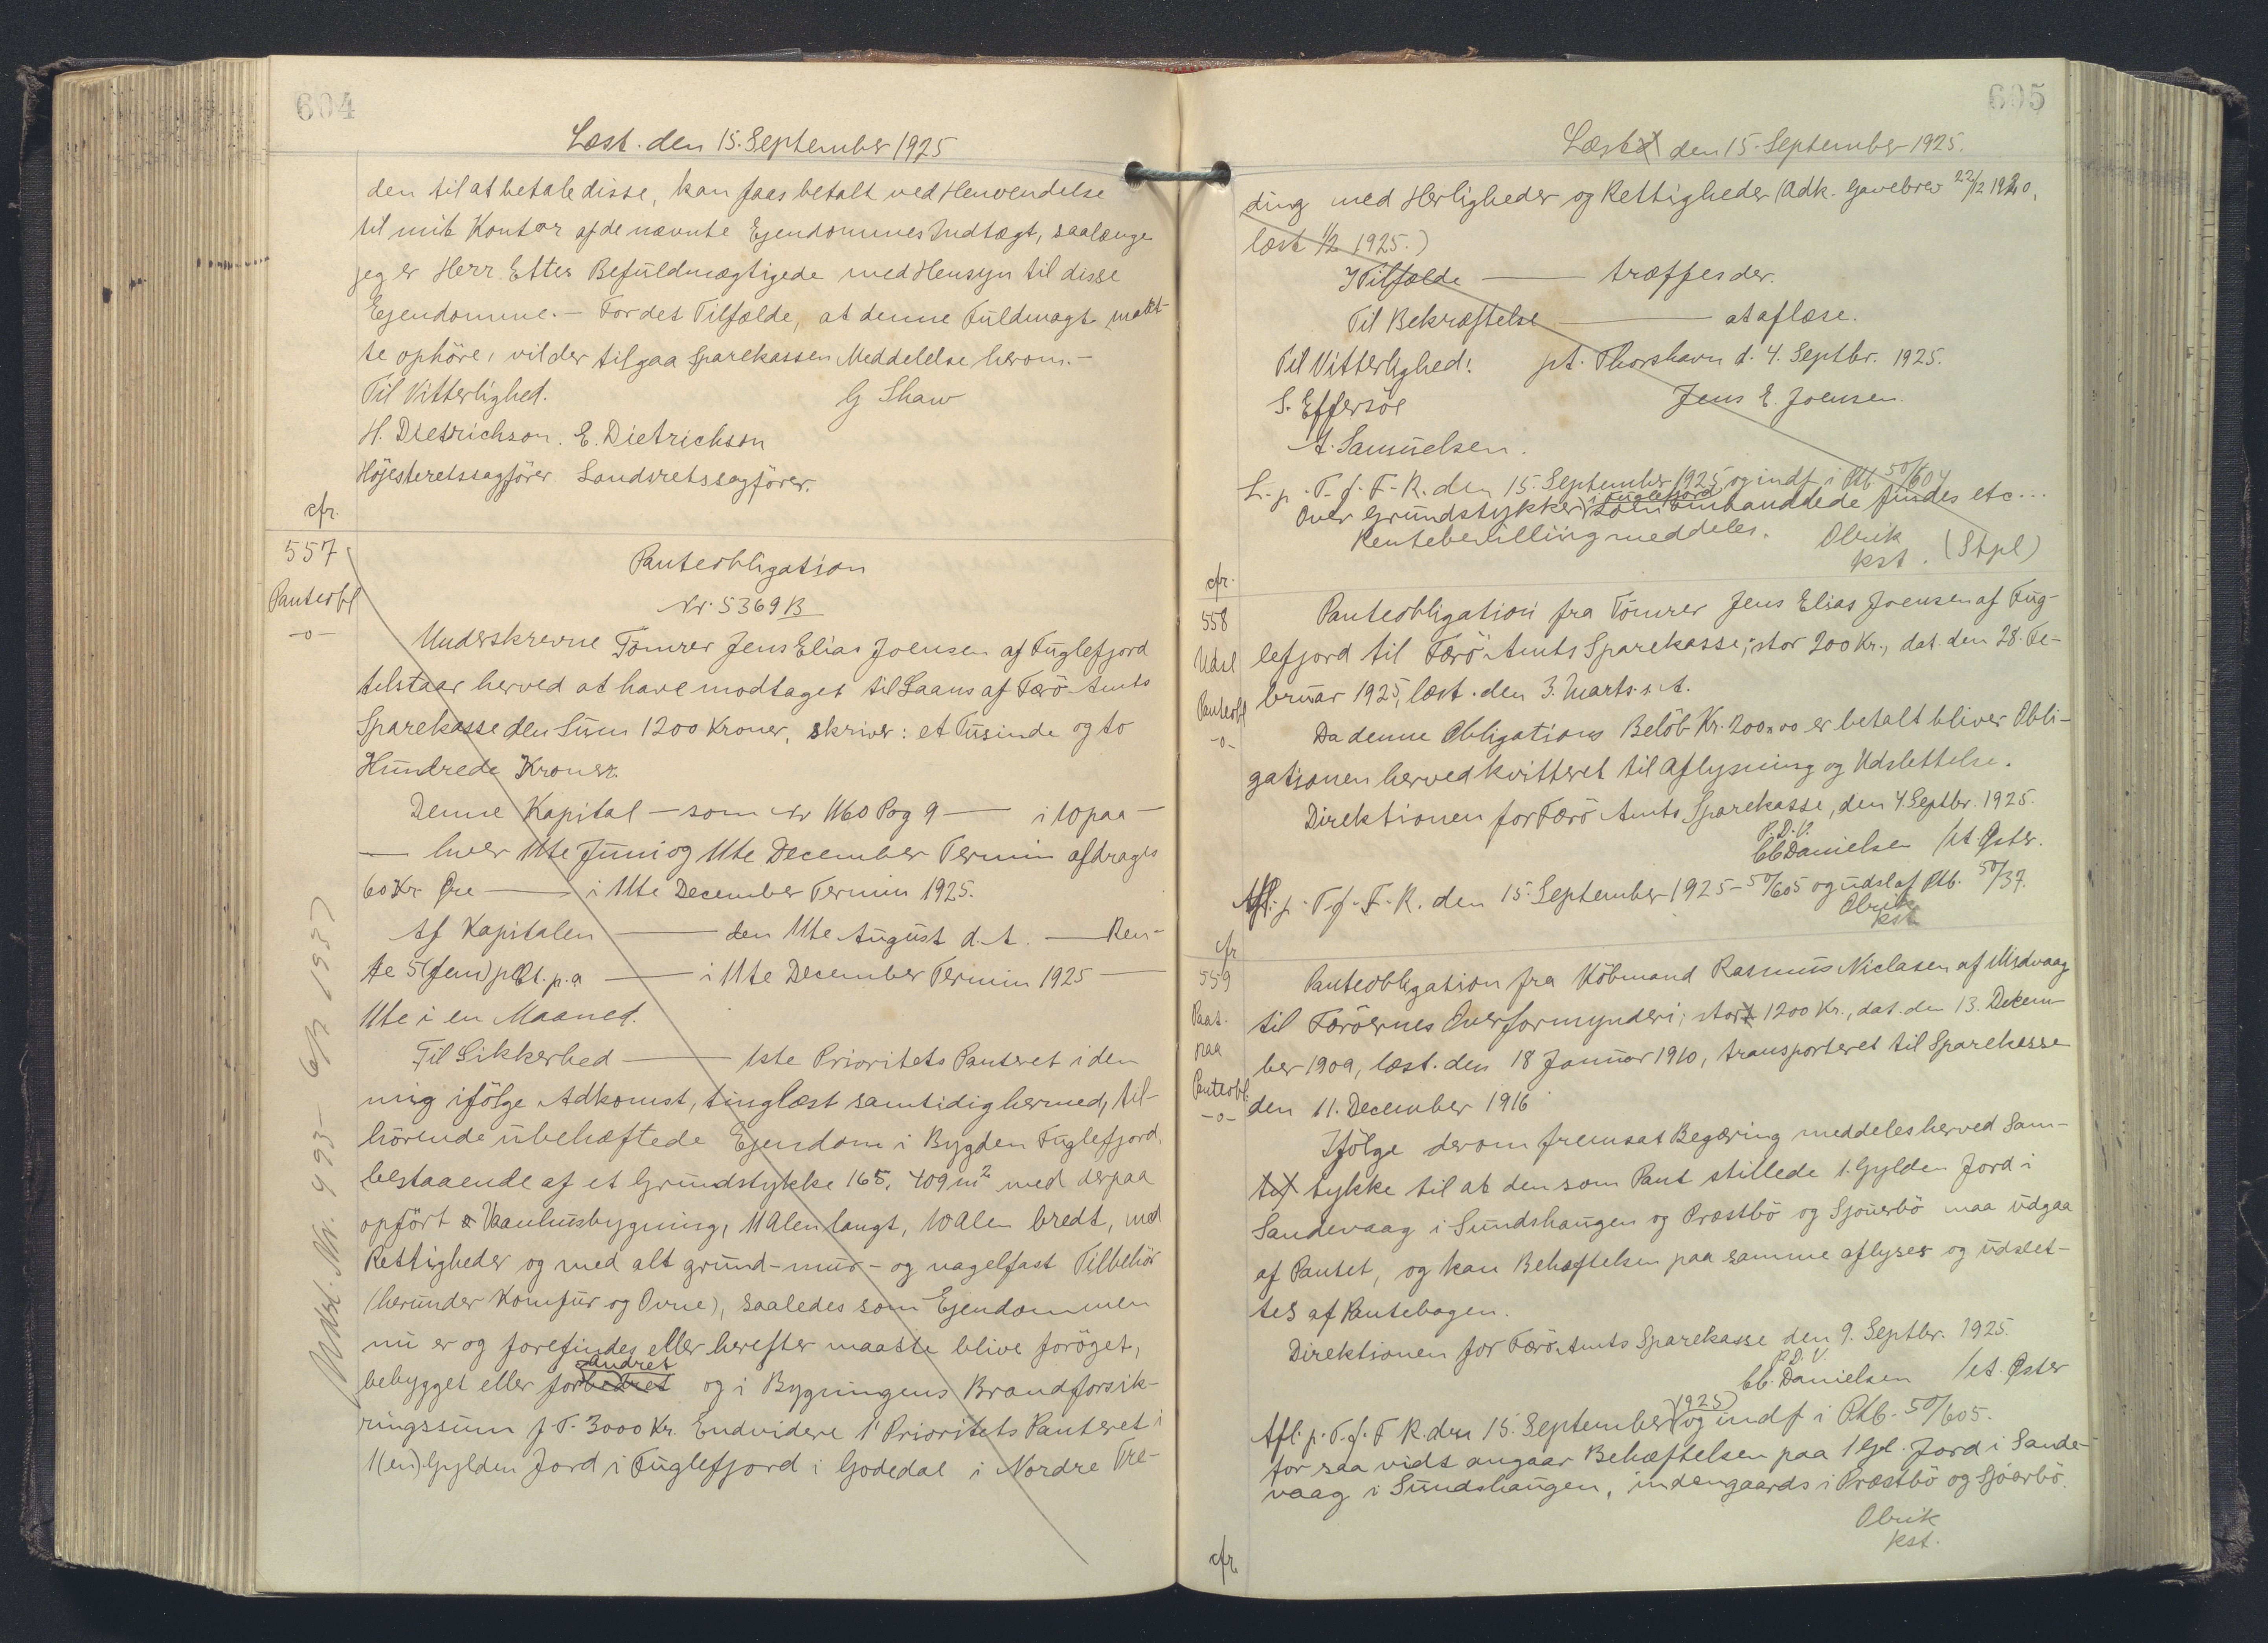 604
Læst. den 15. September 1925
den til at betale disse, kan faas betalt ved Henvendelse
til mit Kontor af de nævnte Ejendommes Indtægt, saalænge
jeg er Herr Ettes Befuldmægtigede med Hensyn til disse
Ejendomme. - For det Tilfælde, at denne Fuldmagt maat-
te ophöre, vil der tilgaa Sparekassen Meddelelse herom. -
Til Vitterlighed. G Shaw
H. Dietrichson. E. Dietrichson
Höjesteretssagförer Landsretssagförer.
cfr.
557
Panteobl
-o-
Panteobligation
Nr. 5369 B
Underskrevne Tömrer Jens Elias Joensen af Fuglefjord
tilstaar herved at have modtaget til Laans af Færö Amts
Sparekasse den Sum 1200 Kroner, skriver: et Tusinde og to
Hundrede Kroner.
Denne Kapital - som Nr 1160 Pag 9 — i 10 paa —
— hver 11te Juni og 11te December Termin afdrages
60 Kr Øre — i 11te December Termin 1925.
Af Kapitalen — den 11te August d. A. — Ren-
te 5 (fem) pCt. p.a — i 11te December Termin 1925 —
11te i en Maaned.
Til Sikkerhed — 1ste Prioritets Panteret i den
mig ifölge Adkomst, tinglæst samtidig hermed, til-
hörende ubehæftede Ejendom i Bygden Fuglefjord,
bestaaende af et Grundstykke 165, 409 m² med derpaa
opfört Vaanhusbygning, 11 Alen langt, 10 Alen bredt, med
Rettigheder og med alt grund- mur- og nagelfast Tilbehör
(herunder Komfur og Ovne), saaledes som Ejendommen
nu er og forefindes eller herefter maatte blive foröget,
andret
bebygget eller forbedret og i Bygningens Brandforsik-
ringssum f. T. 3000 Kr. Endvidere 1' Prioritets Panteret i
1 (en) Gylden Jord i Fuglefjord i Godedal i Nordre Tre-
Udsl. Nr. 493 - 6/7 1957
605
Læst den 15. September 1925.
ding med Herligheder og Rettigheder (Adk. Gavebrev 22/12 1920,
læst 1/2 1925.)
I Tilfælde — træffes der.
Til Bekræftelse — at aflæse.
Til Vitterlighed: pt. Thorshavn d. 4. Septbr. 1925.
S. Effersöe Jens E. Joensen.
A. Samuelsen.
L. p. T. f. F. R. den 15. September 1925 og indf i Ptb. 50/604
i Fuglefjord
Over Grundstykker som omhandlede findes etc...
Rentebevilling meddeles. Olrik
kst. (Stpl)
cfr.
558
Udsl
Panteobl
-o-
Panteobligation fra Tömrer Jens Elias Joensen af Fug-
lefjord til Færö Amts Sparekasse; stor 200 Kr., dat. den 28. Fe-
bruar 1925, læst. den 3. Marts s. A.
Da denne Obligations Belöb Kr. 200,00 er betalt bliver Obli-
gationen herved kvitteret til Aflysning og Udslettelse.
Direktionen for Færö Amts Sparekasse, den 4. Septbr. 1925.
P. D. V.
Danielsen / A. Øster.
Afl. p. T. f. F. R. den 15. September 1925 - 50/605 og udsl af Ptb. 50/37.
Olrik
kst
cfr
559
Paat.
paa
Panteobl.
-o-
Panteobligation fra Köbmand Rasmus Niclasen af Midvaag
til Færöernes Overformynderi; stor 1200 Kr., dat. den 13. Decem-
ber 1909, læst. den 18 Januar 1910, transporteret til Sparekasse
den 11. December 1916
Ifölge derom fremsat Begæring meddeles herved Sam-
tykke til at den som Pant stillede 1. Gylden Jord i
Sandevaag i Sundshaugen og Præstbö og Sjöuerbö maa udgaa
af Pantet, og kan Behæftelsen paa samme aflyses og udslet-
tes af Pantebogen.
Direktionen for Færö Amts Sparekasse den 9. Septbr. 1925.
P. D. V.
Danielsen / A. Øster
1925
Afl. p. T. f. F R. den 15. September og indf i Ptb. 50/605.
for saa vidt angaar Behæftelsen paa 1 Gl. Jord i Sande-
vaag i Sundshaugen, indengaards i Præstbö og Sjöerbö.
Olrik
kst.
cfr.